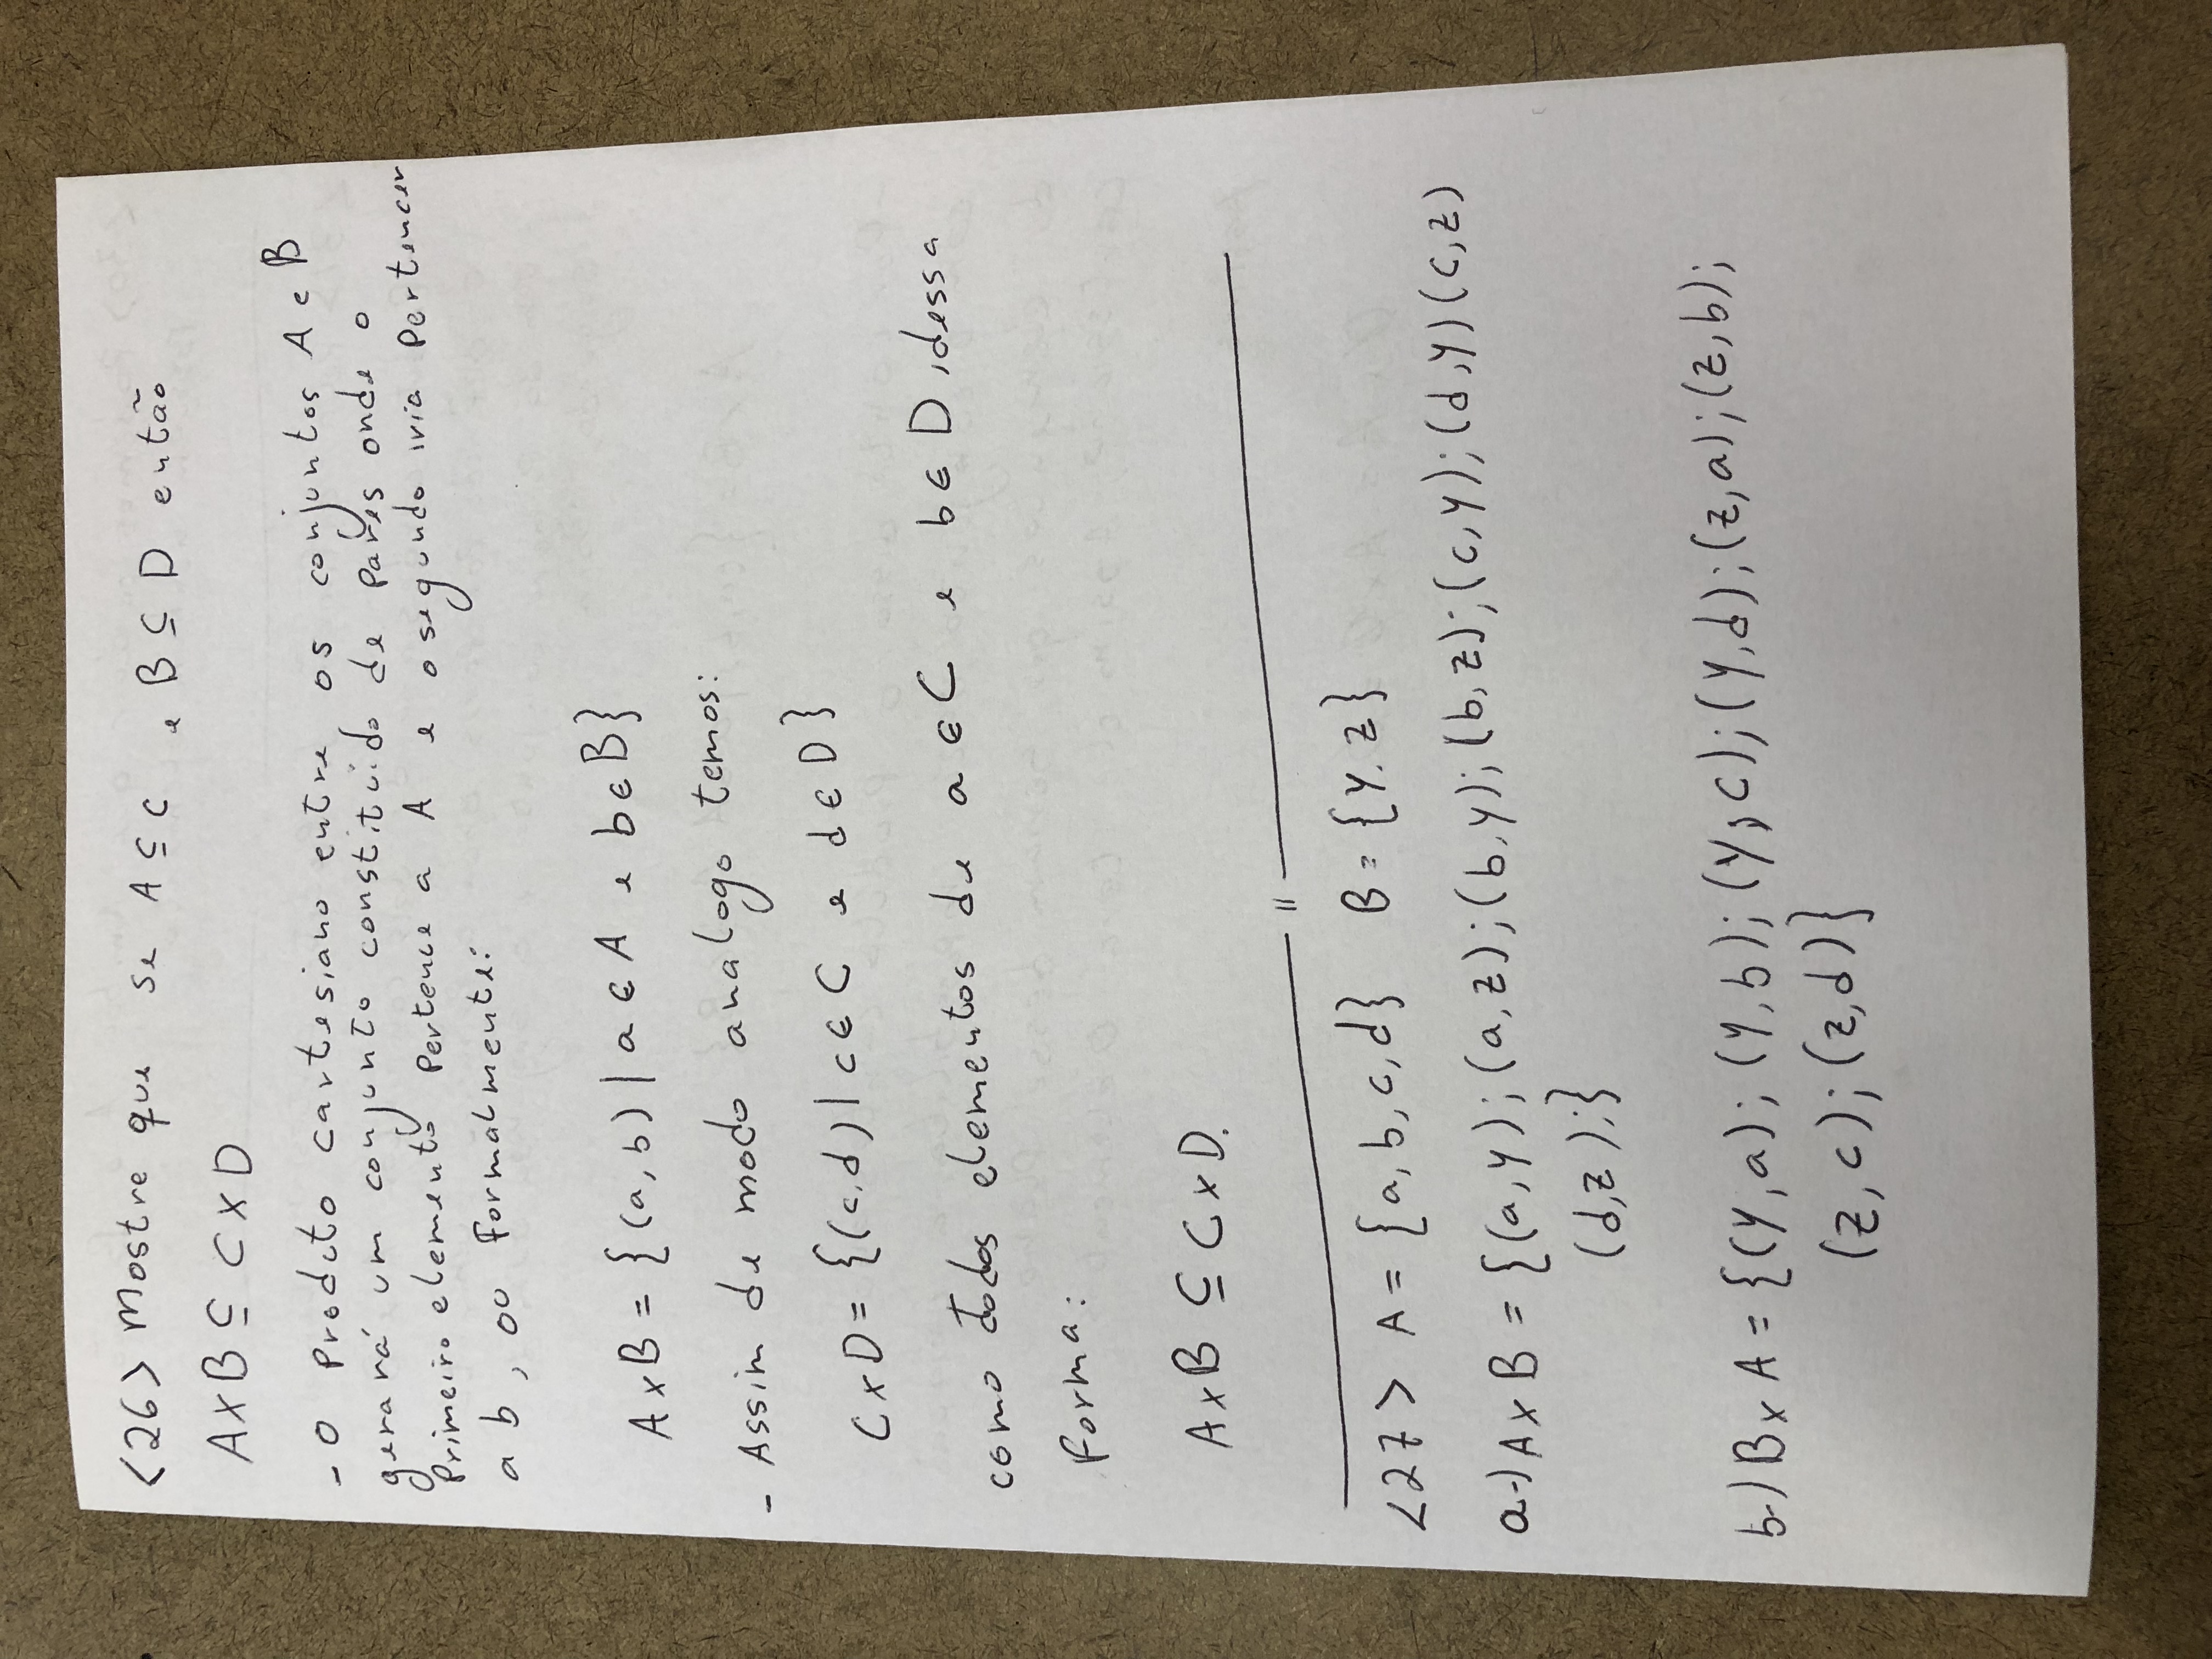 <26> Mostre que se A ⊆ C e B ⊆ D então
A×B ⊆ C×D
- O Produto cartesiano entre os conjuntos A e B
gerará um conjunto constituido de pares onde o
Primeiro elemento Pertence a A e o segundo iria Pertencer
a b, ou Formalmente:
A×B = {(a,b) | a ∈ A e b ∈ B}
- Assim de modo analogo temos:
C×D = {(c,d) | c ∈ C e d ∈ D}
como todos elementos de a ∈ C e b ∈ D, dessa
Forma:
A×B ⊆ C×D.
//
<27> A = {a, b, c, d} B = {y, z}
a-) A×B = {(a,y); (a,z); (b,y); (b,z); (c,y); (d,y) (c,z)
(d,z);}
b-) B×A = {(y,a); (y,b); (y,c); (y,d); (z,a); (z,b);
(z,c); (z,d)}